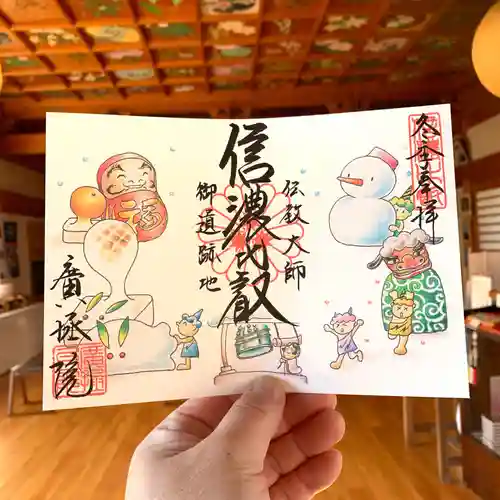 冬季奉拝
伝教大師
信濃比叡
御遺跡地
廣拯院
福